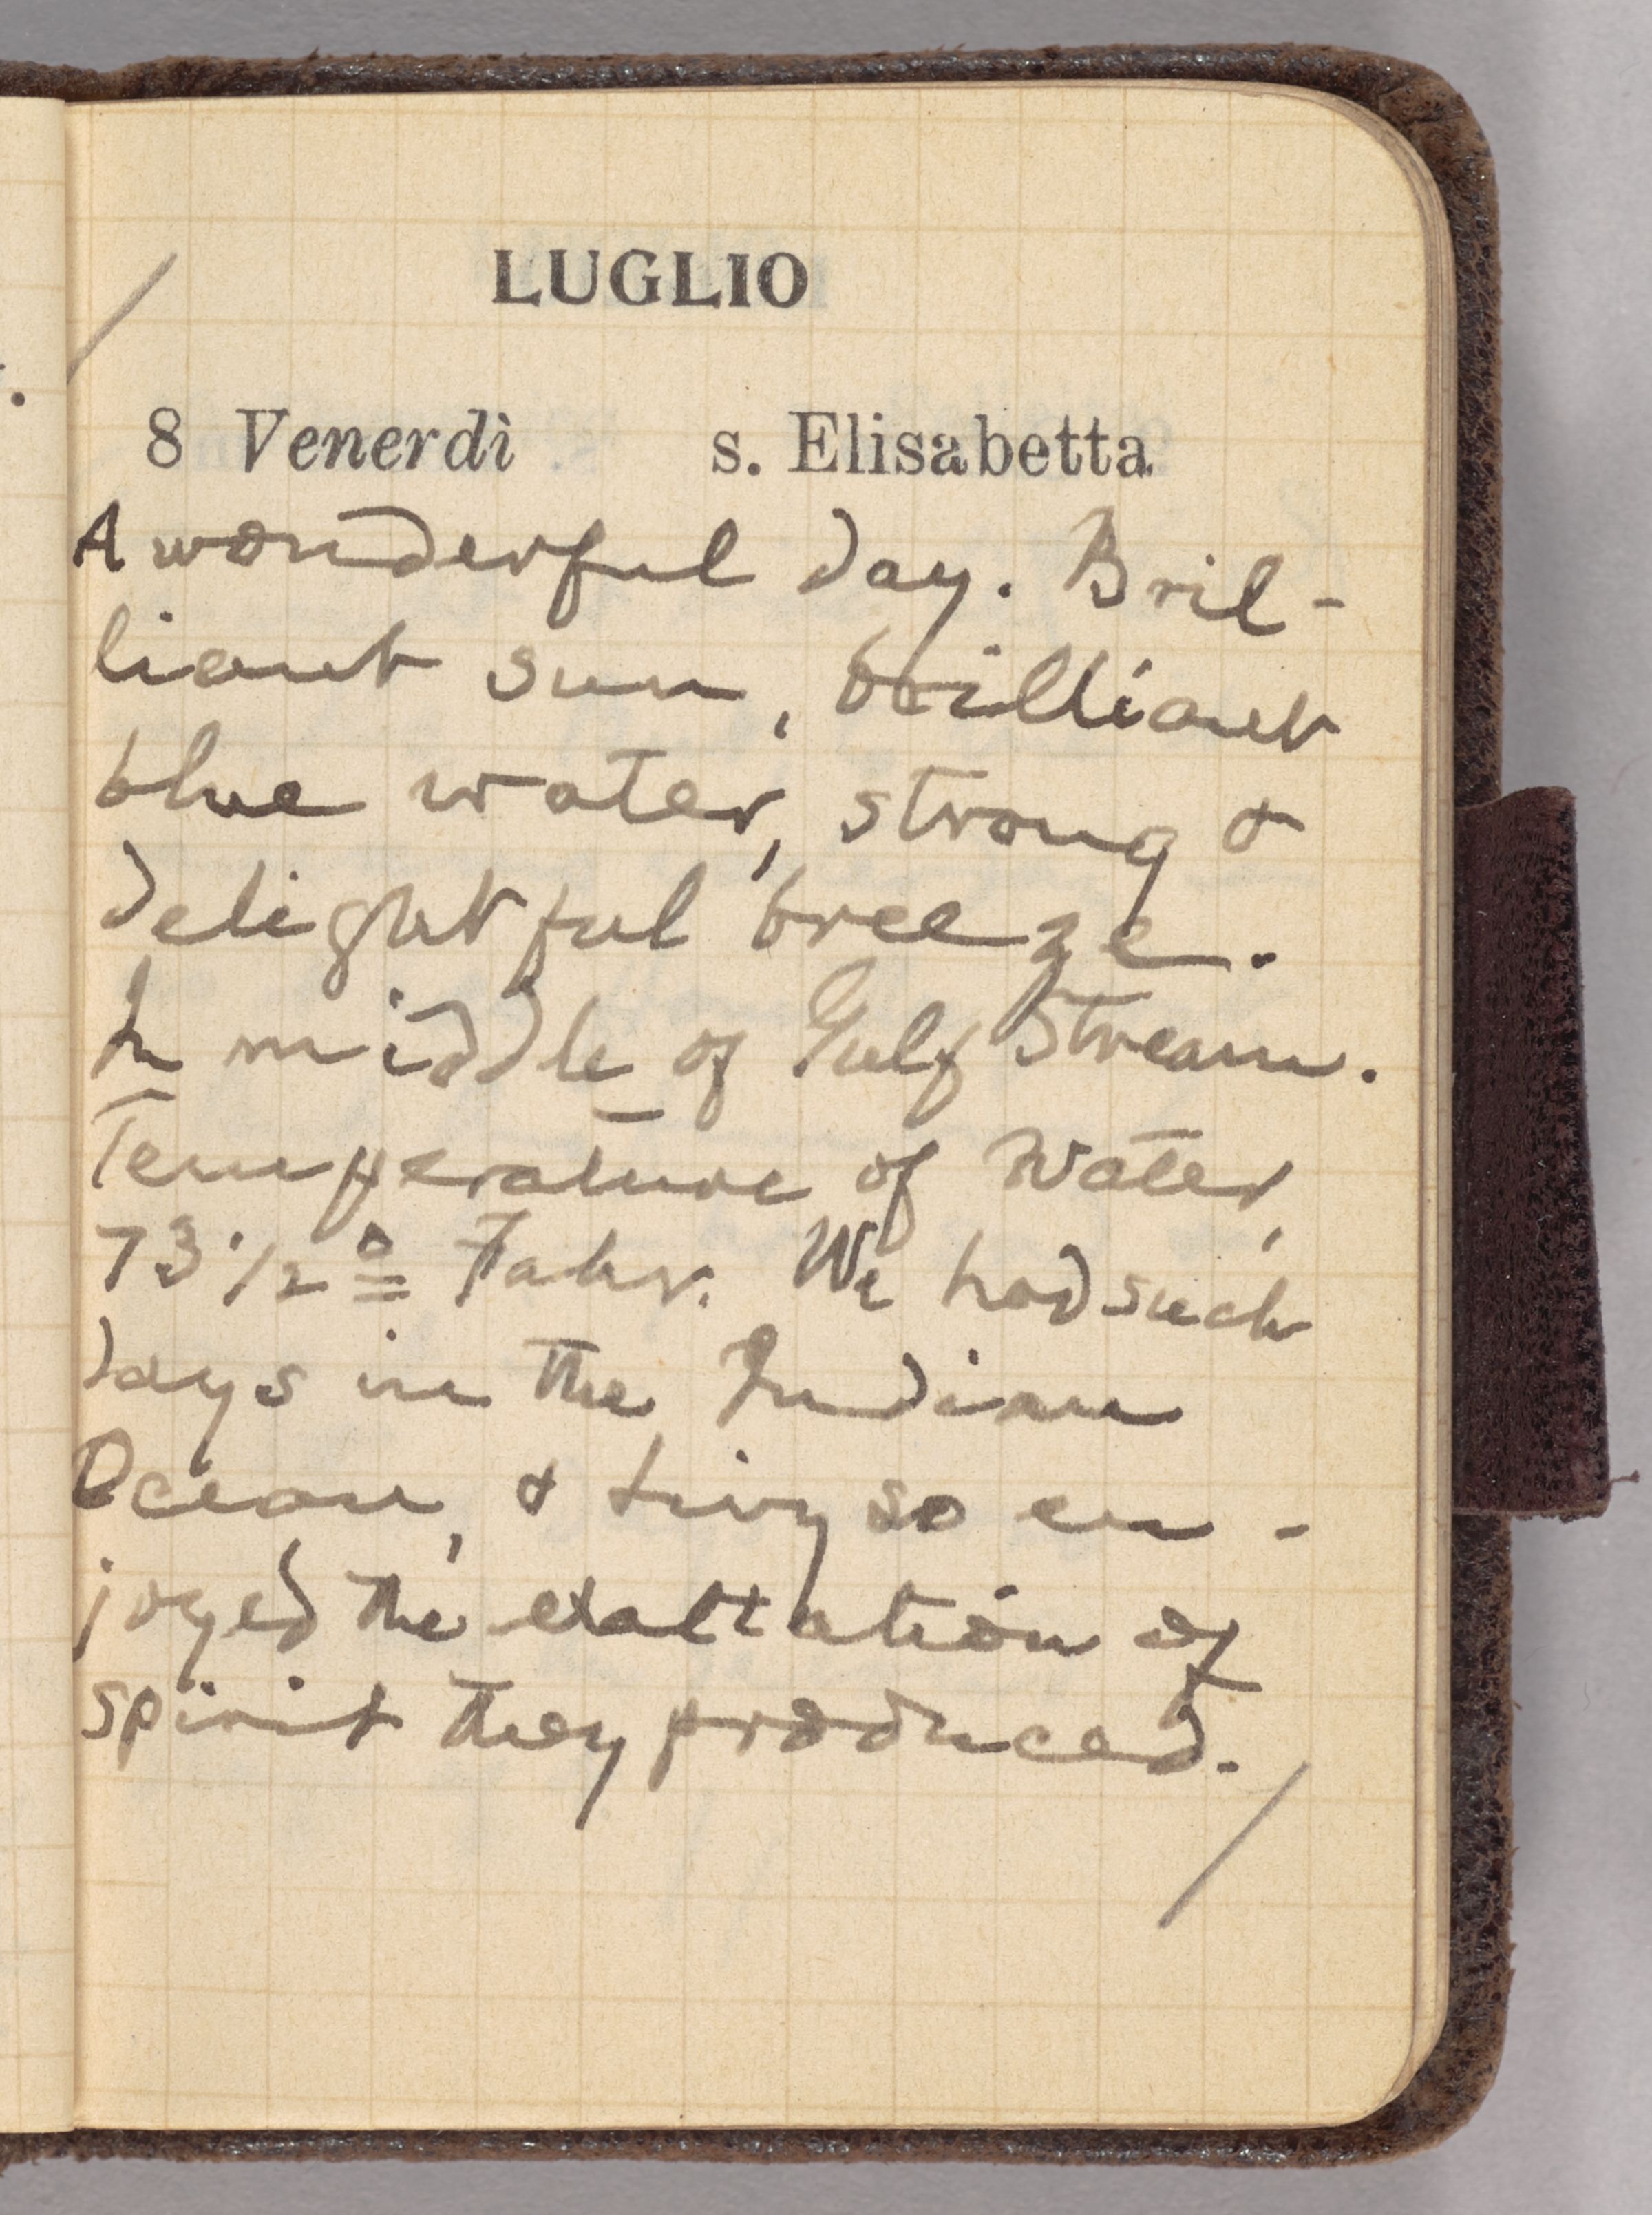 LUGLIO
8 Venerdì s. Elisabetta
A wonderful day. Bril-
liant sun, brilliant
blue water, strong &
delightful breeze.
In middle of Gulf Stream.
Temperature of water,
73 1/2° Fahr. We had such
days in the Indian
Ocean, & Livy so en-
joyed the exaltation of
spirit they produced.